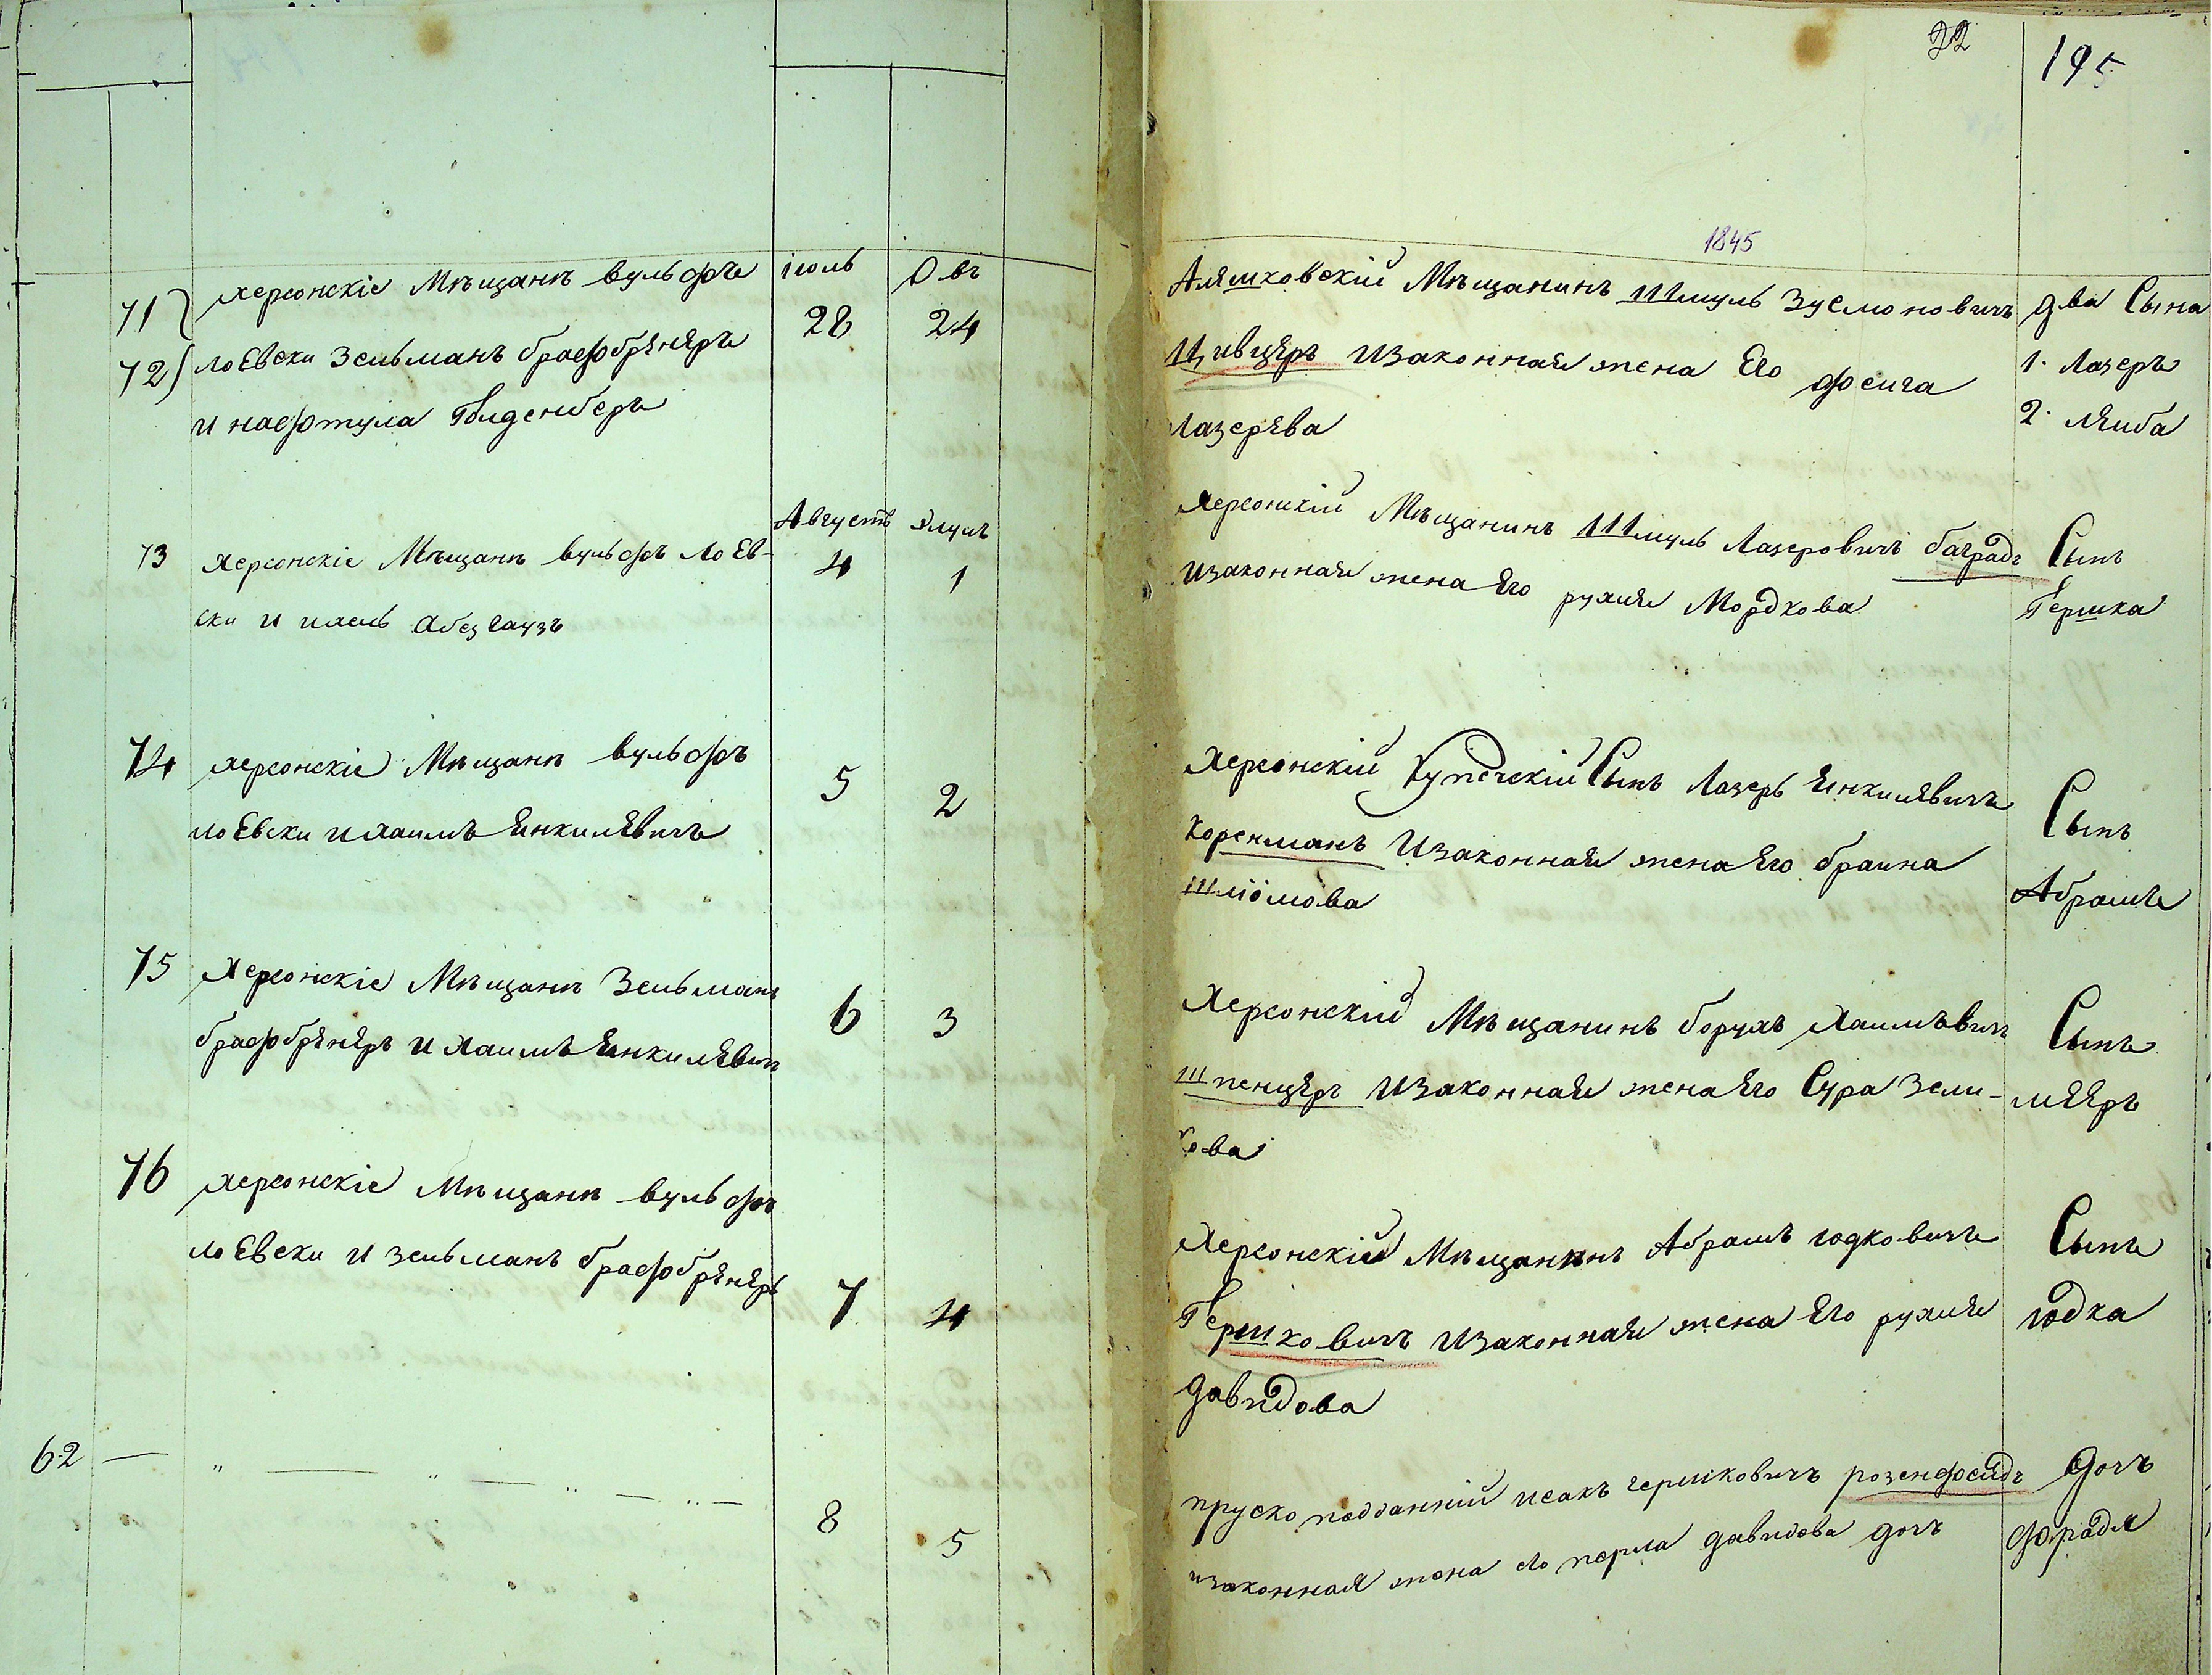 22
195
1845
71
72
херсонскіе Мѣщанѣ вульфъ
лоЕвски Зельманъ брасфобрѣнеръ
и насфтула Голденберъ
іюль
28
Овъ
24
Аляшковскій Мѣщанинъ Шмуль Зусмоновичъ
Цивцеръ Изаконная жена Его фейга
Лазерева
два Сына
1. Лазеръ
2. Лейба
73
херсонскіе Мѣщанѣ вульфъ лоЕв-
ски и ихель Абезгаузъ
Августъ
4
Элулъ
1
херсонскій Мѣщанинъ Шмуль Лазеровичъ баградъ
Изаконная жена Его рухля Мордкова
Сынъ
Гершка
74
херсонскіе Мѣщанѣ вульфъ
лоЕвски и хаимъ Янкилевичъ
5
2
херсонскій Купеческій Сынъ Лазеръ Янкилевичъ
Коренманъ Изаконная жена Его браина
Шліомова
Сынъ
Абрамъ
75
херсонскіе Мѣщанѣ Зельманъ
брасфобрѣнеръ и хаимъ Янкилевичъ
6
3
Херсонскій Мѣщанинъ борухъ Хаимъвичъ
Шпенцеръ Изаконная жена Его Сура Зели-
кова
Сынъ
меЕръ
76
херсонскіе Мѣщанѣ вульфъ
лоЕвски и зельманъ брасфобрѣнеръ
7
4
Херсонскій Мѣщанинъ Абрамъ годковичъ
Гершковичъ Изаконная жена Его рухля
давидова
Сынъ
годка
62 — „ — „ — „ — „ —
8
5
пруско подданній исакъ гершковичъ розенфельдъ
изаконная жена его перла давидова дочъ
дочъ
фрадя